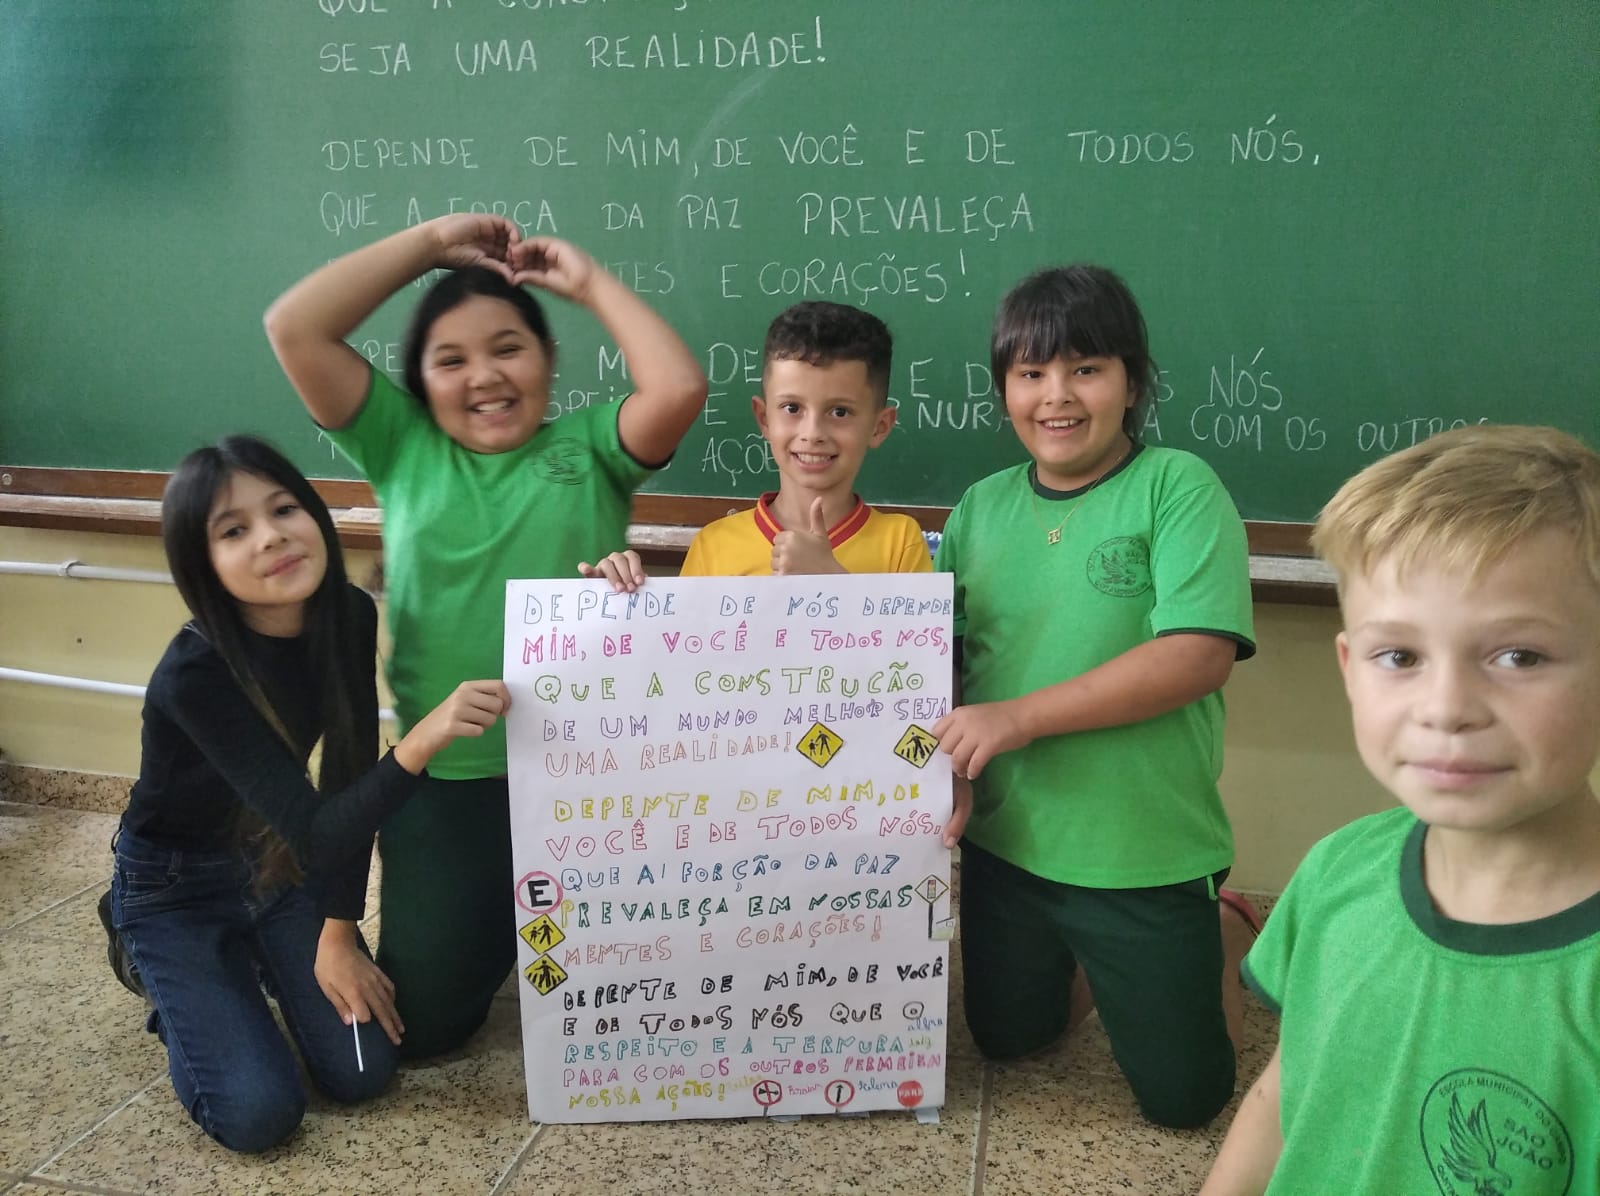 SEJA UMA REALIDADE!
DEPENDE DE MIM, DE VOCÊ E DE TODOS NÓS,
QUE A FORÇA DA PAZ PREVALEÇA
E CORAÇÕES!
NÓS
COM OS OUTROS
AÇÕE
DEPENDE DE NÓS DEPENDE
MIM, DE VOCÊ E TODOS NÓS,
QUE A CONSTRUCÃO
DE UM MUNDO MELHOR SEJA
UMA REALIDADE!
DEPENTE DE MIM, DE
VOCÊ E DE TODOS NÓS,
QUE A FORÇÃO DA PAZ
E
PREVALEÇA EM NOSSAS
MENTES E CORAÇÕES!
DEPENTE DE MIM, DE VOCÊ
E DE TODOS NÓS QUE O
RESPEITO E A TERNURA
PARA COM OS OUTROS PERMEIEN
NOSSA AÇÕES!
PARE
ESCOLA MUNICIPAL DO CAMPO
SÃO JOÃO
SÃO JOÃO